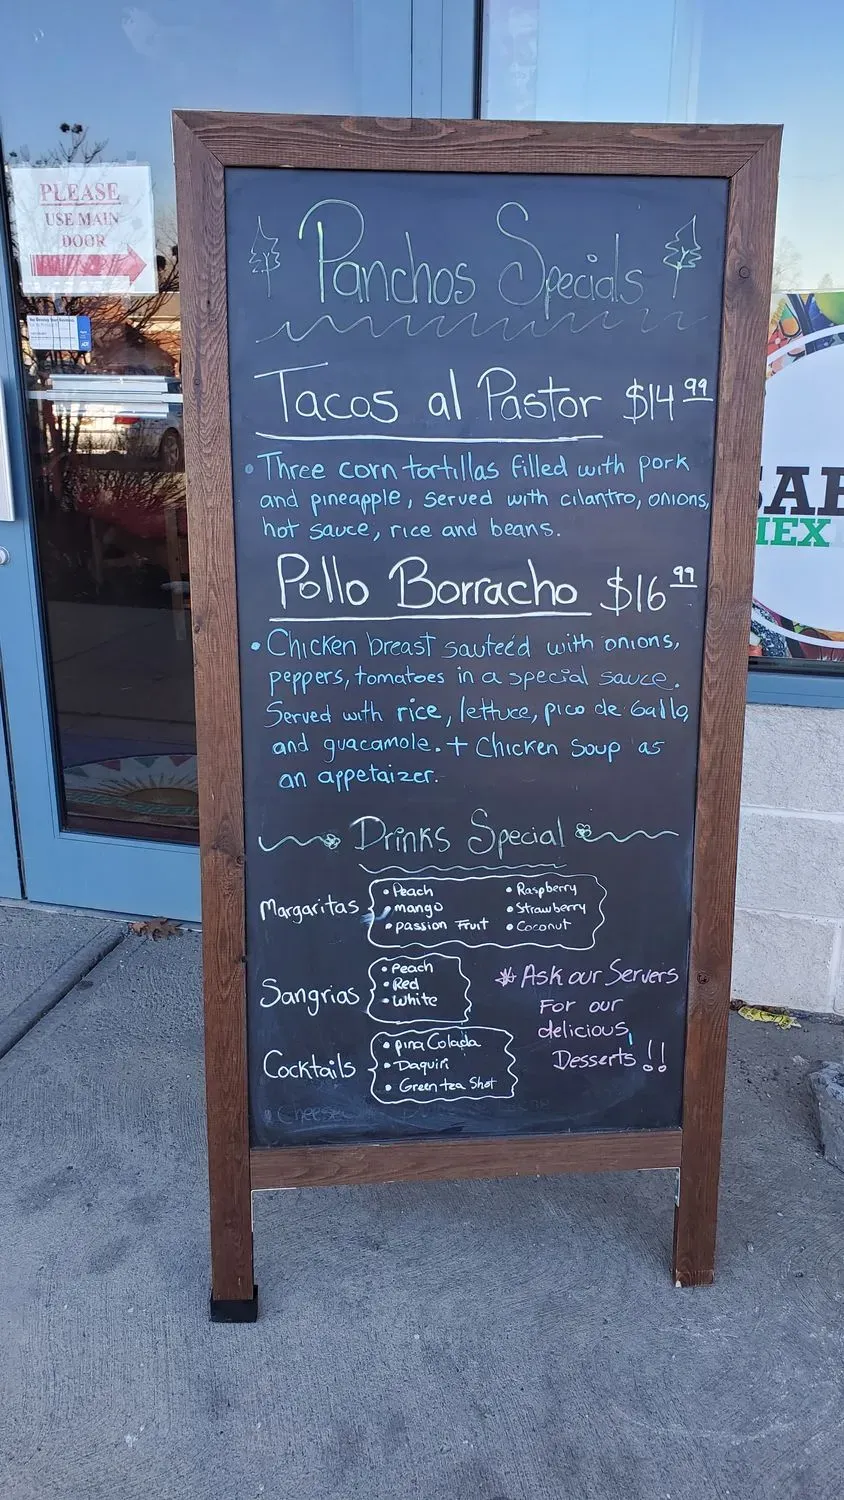 PLEASE
USE MAIN
DOOR
Panchos Specials
Tacos al Pastor $14.99
• Three corn tortillas filled with pork
and pineapple, served with cilantro, onions,
hot sauce, rice and beans.
Pollo Borracho $16.99
• Chicken breast sauteéd with onions,
peppers, tomatoes in a special sauce.
Served with rice, lettuce, pico de Gallo,
and guacamole. + Chicken Soup as
an appetaizer.
Drinks Special
Margaritas
• Peach
• mango
• passion Fruit
• Raspberry
• Strawberry
• Coconut
Sangrias
• Peach
• Red
• White
* Ask our Servers
For our
delicious
Desserts!!
Cocktails
• pina Colada
• Daquiri
• Green tea Shot
IEX